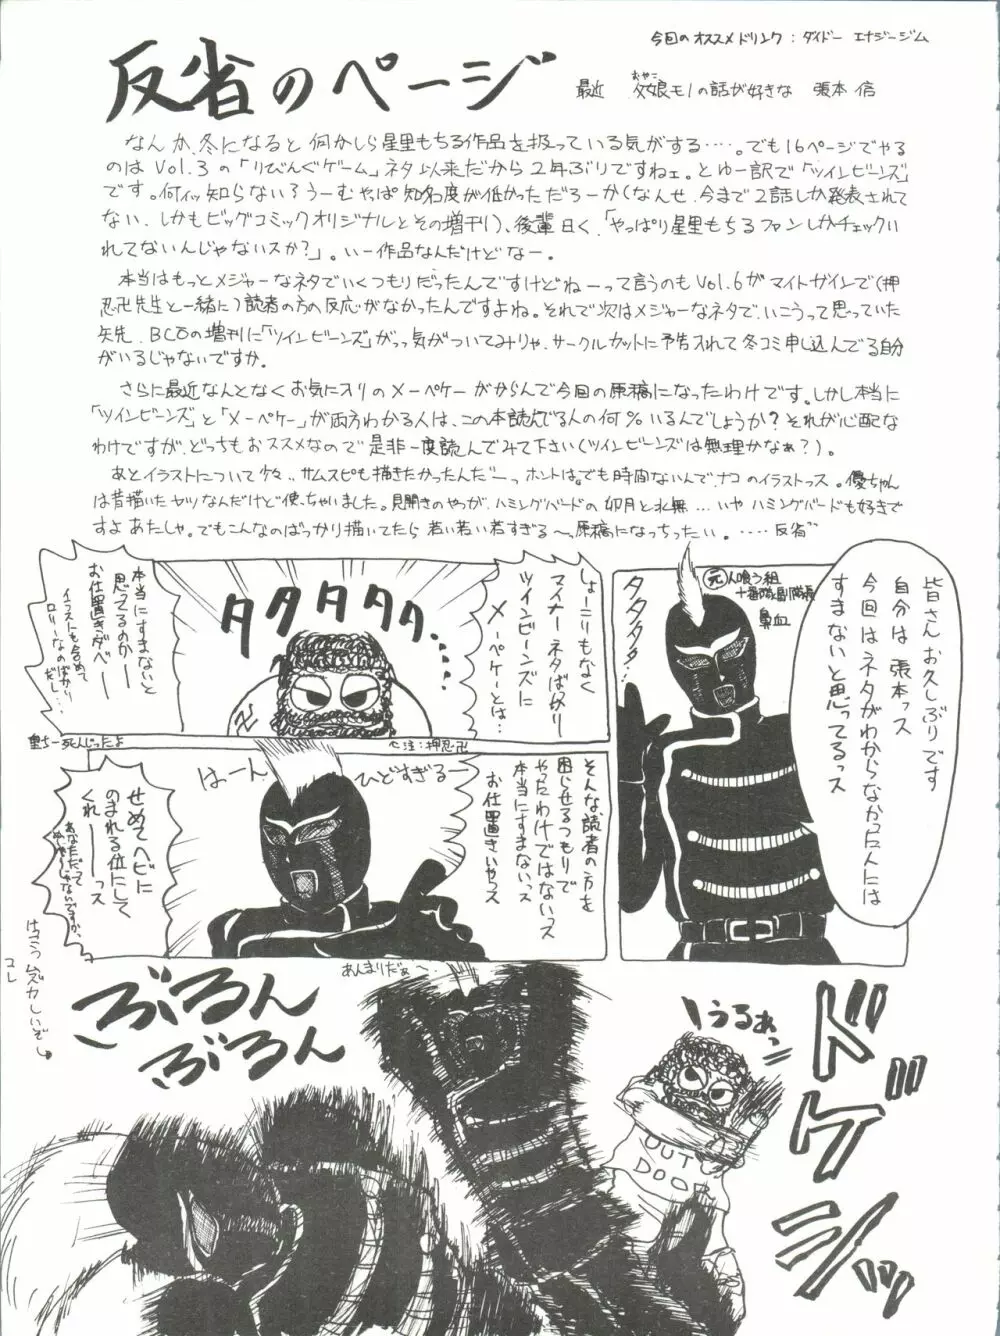 今回のオススメドリンク：ダイドー エナジージム
反省のページ
最近 父娘モノの話が好きな 張本 信
おやこ
なんか、冬になると何かしら星里もちる作品を扱っている気がする……。でも16ページでやる
のはVol.3の「りびんぐゲーム」ネタ以来だから2年ぶりですねェ。とゆー訳で「ツインビーンズ」
です。何ィッ知らない?うーむやっぱ知名度が低かっただろーか(なんせ、今まで2話しか発表されて
ない、しかもビッグコミックオリジナルとその増刊)、後輩曰く、「やっぱり星里もちるファンしかチェックい
れてないんじゃないスか?」。いー作品なんだけどなー。
本当はもっとメジャーなネタでいくつもりだったんですけどねーって言うのもVol.6がマイトガインで(押
忍卍先生と一緒に)読者の方の反応がなかったんですよね。それで次はメジャーなネタで、いこうって思っていた
矢先、BCOの増刊に「ツインビーンズ」がっっ気がついてみりゃ、サークルカットに予告されて冬コミ申し込んでる自分
がいるじゃないですか。
さらに最近なんとなくお気に入りのメーペケーがからんで今回の原稿になったわけです。しかし本当に
「ツインビーンズ」と「メーペケー」が両方わかる人は、この本読んでる人の何%いるんでしょうか?それが心配な
わけですが、どっちもおススメなので是非一度読んでみて下さい(ツインビーンズは無理かなぁ?)。
あとイラストについて少々、サムスピも描きたかったんだーっホントは。でも時間ないんで、ナコのイラストっス。優ちゃん
は昔描いたヤツなんだけど使っちゃいました。見開きのやつが、ハミングバードの卯月と水無…いやハミングバードも好きで
すよあたしゃ。でもこんなのばっかり描いてたら若い若い若すぎる〜っ原稿になっちったい。……反省
皆さんお久しぶりです
自分は張本っス
今回はネタがわからなかった人には
すまないと思ってるっス
元人喰う組
十番隊副隊長
鼻血
タタタタ
しょーこりもなく
マイナーネタばかり
ツインビーンズに
メーペケーとは…
タタタタタ、
本当にすまないと
思ってるのかー
お仕置きダベー
イラストも含めて
ロリーなのばかり
だし…
卍
注：押忍卍
里ちー死んじったよ
そんな、読者の方を
困らせるつもりで
やったわけではないっス
本当にすまないっス
お仕置きいやっス
ひどすぎるー
はーん
せめてヘビに
のまれる位にして
くれーーっス
はっきっムズカしいぞ
コレ
あんまりだぁ〜
ぶるん
ぶるん
うるぁっ
OUT
DOOR
ドドゲシッ